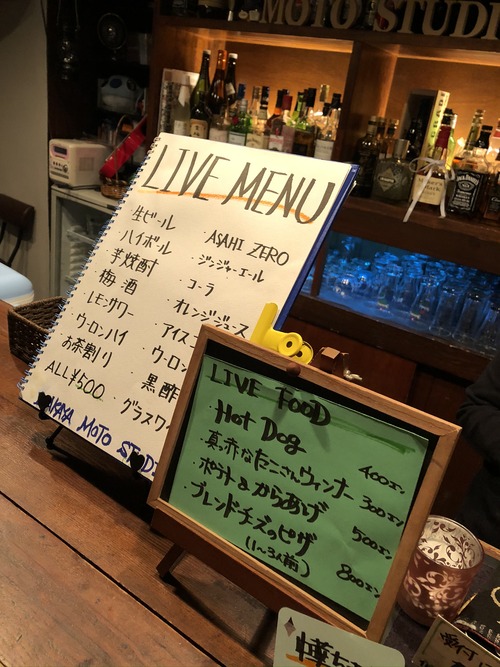 MOTO STUDI
LIVE MENU
・生ビール
・ハイボール
・芋焼酎
・梅酒
・レモンサワー
・ウーロンハイ
・お茶割り
ALL¥500
・ASAHI ZERO
・ジンジャーエール
・コーラ
・オレンジジュース
・アイス
・ウーロン
・黒酢
・グラスワ
AKAYA MOTO STUDI
LIVE FOOD
・Hot Dog 400エン
・真っ赤なたこさんウィンナー 300エン
・ポテト&からあげ 500エン
・ブレンドチーズのピザ
(1〜3人前) 800エン